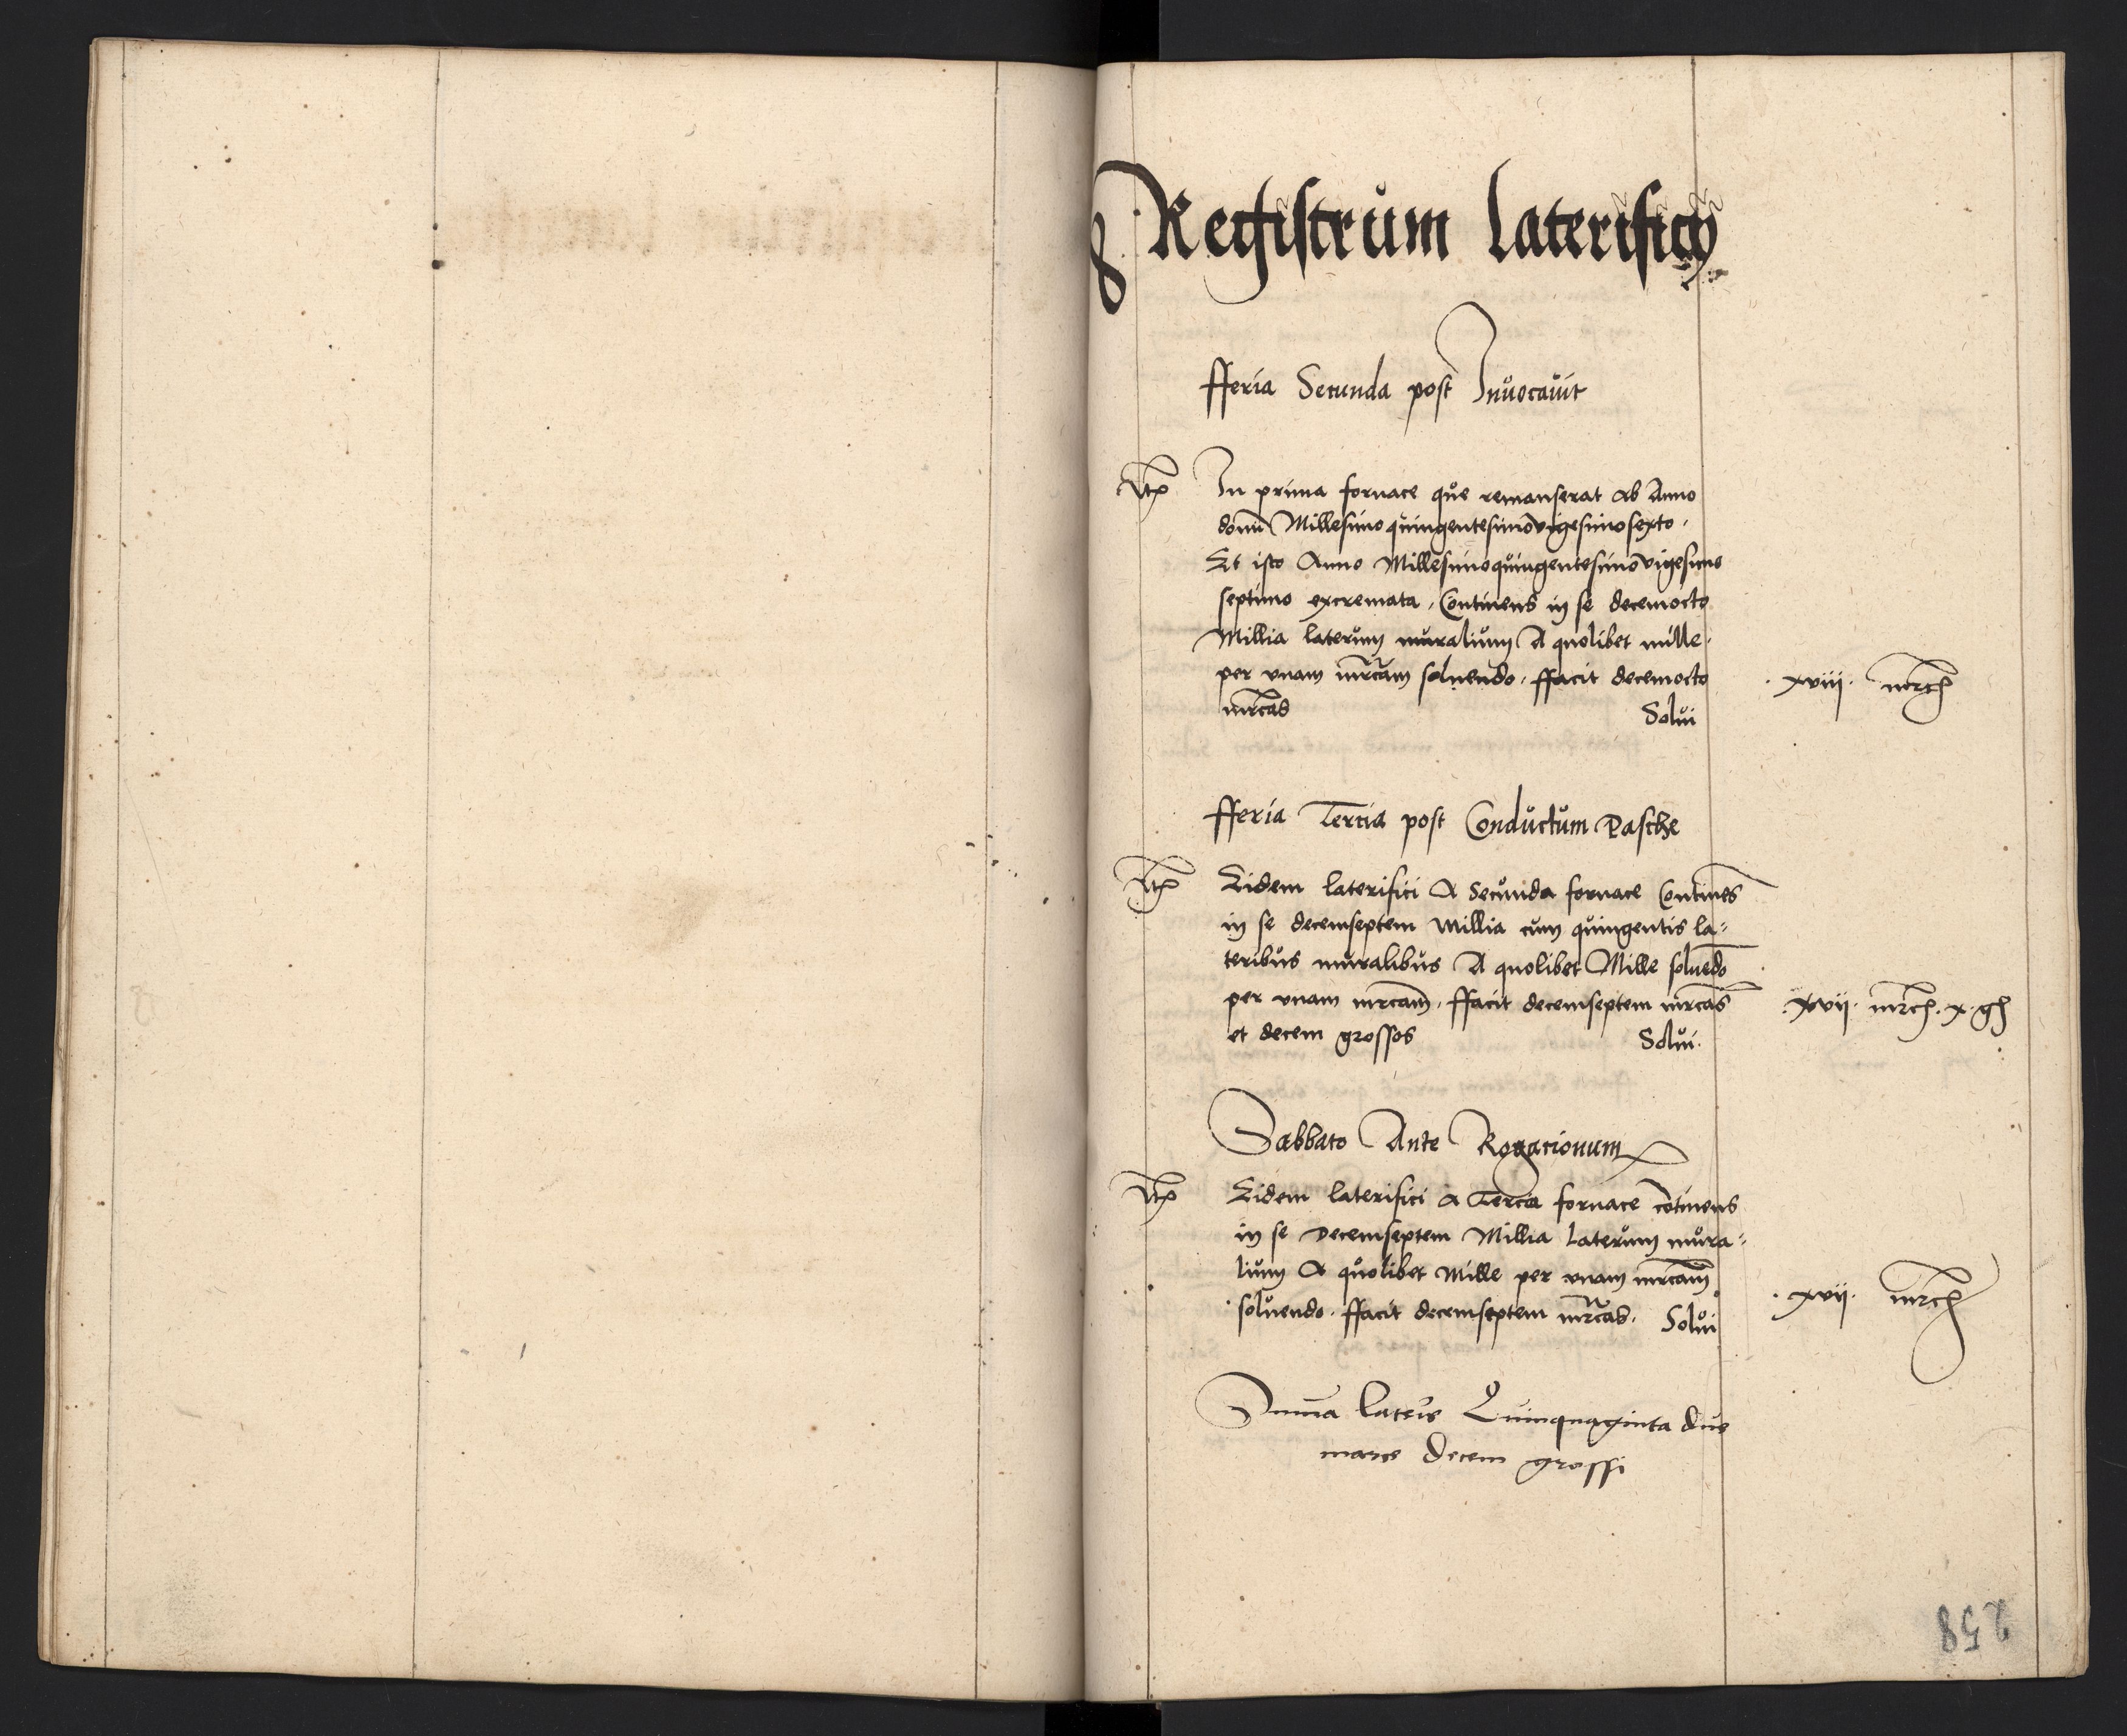 Registrum laterificij
fferia Secunda post Invocavit
Itē In prima fornace que remanserat Ab Anno
domi Millesimoquingentesimovigesimosexto.
Et isto Anno Millesimoquingentesimovigesimo
septimo excremata, Continens in se decemocto
Millia laterum muralium A quolibet mille.
per vnam mrcam solvendo. ffacit decemocto .xviij. mrc
mrcas Solui
fferia Tercia post Conductum Pasche
Itē Eidem laterifici A Secunda fornace Contines
in se decemseptem Millia cum quingentis la=
teribus muralibus A quolibet Mille soluedo
per vnam mrcam. ffacit decemseptem mrcas .xvij. mrc. x. g
et decem grossos Solui.
Sabbato Ante Rogacionum
Itē Eidem laterifici A Tercia fornace cotinens
in se Decemseptem Millia laterum mura=
lium A quolibet Mille per vnam mrcam
soluendo. ffacit decemseptem mrcas. Solui .xvij. mrc
Suma lateris Quinquaginta due
marce Decem grossi
258